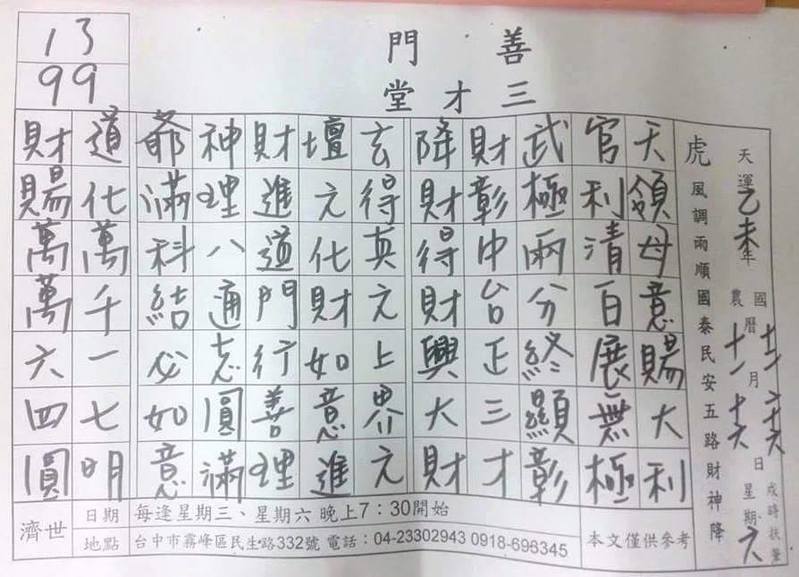 善門
三才堂
13
99
天運乙未年 國曆十二月二十六日 農曆十一月十六日 星期六 戌時扶鸞
虎風調雨順國泰民安五路財神降
天領母意賜大利
官利清百展無極
武極兩分終顯彰
財彰中台正三才
降財得財興大財
玄得英元上界元
壇元化財如意進
財進道門行善理
神理八通志圓滿
爺滿科結必如意
道化萬千一七明
財賜萬萬六四圓
濟世
日期 每逢星期三、星期六 晚上7：30開始
地點 台中市霧峰區民生路332號 電話：04-23302943 0918-696345
本文僅供參考